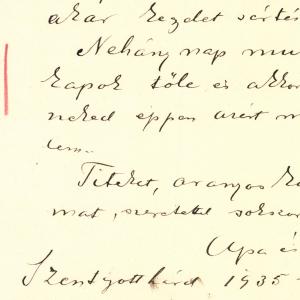 akár kezdet sértés
Nehány nap mu
kapok tőle és akkor
neked éppen azért m
tem.
Titeket, aranyos
mat, szeretettel sokszor
Apa és
Szentgotthárd, 1935-